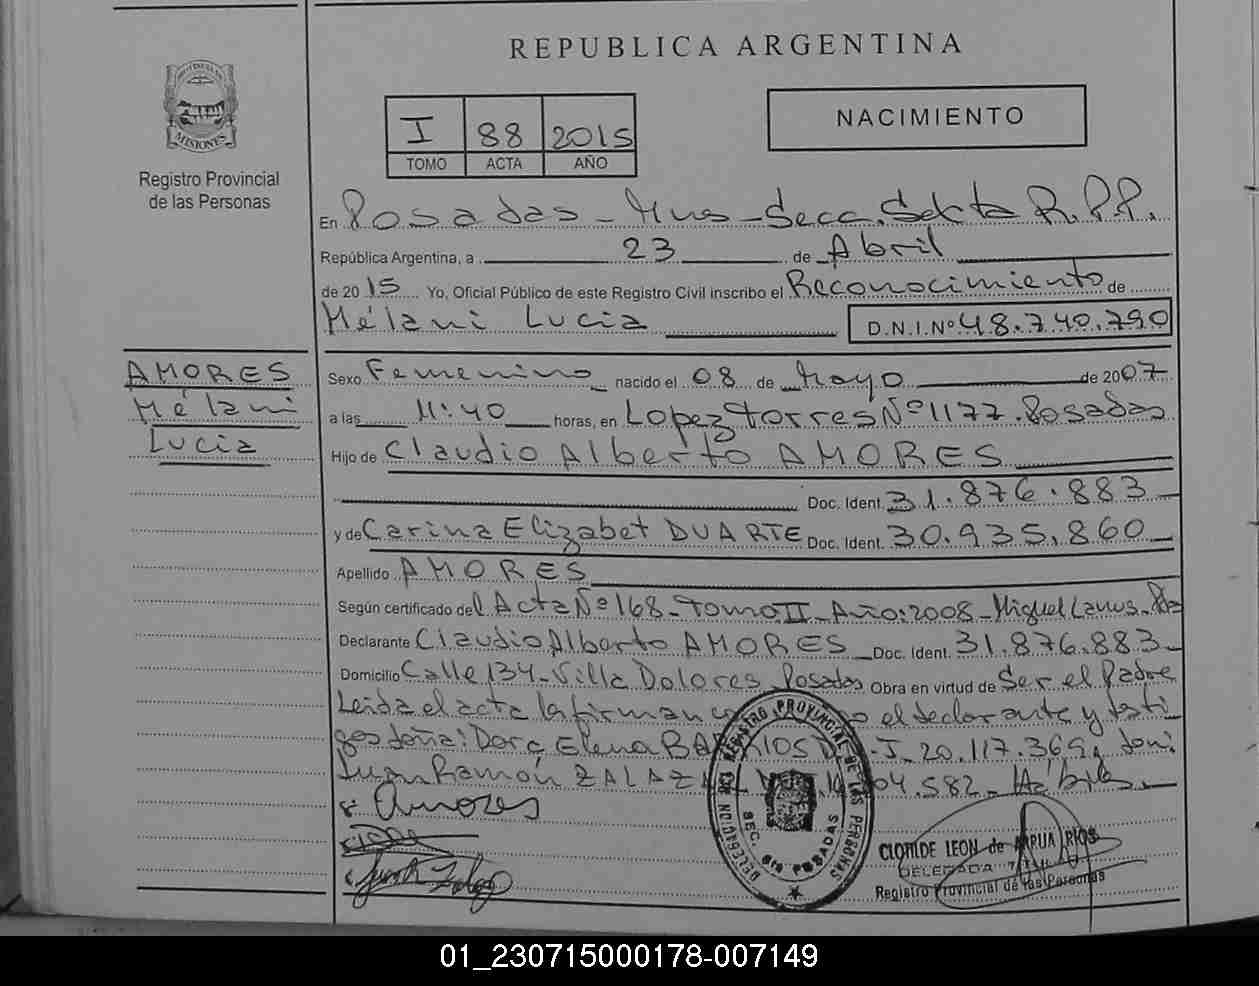 REPUBLICA ARGENTINA
MISIONES
Registro Provincial
de las Personas
I 88 2015
TOMO ACTA AÑO
NACIMIENTO
En Posadas - Mnes - Secc. Sexta R.P.P.
República Argentina, a 23 de Abril
de 2015 Yo, Oficial Público de este Registro Civil inscribo el Reconocimiento de
Mélani Lucia D.N.I.Nº 48.740.790
AMORES
Mélani
Lucia
Sexo Femenino nacido el 08 de Mayo de 2007
a las 11:40 horas, en Lopez Torres Nº 1177. Posadas
Hijo de Claudio Alberto AMORES
Doc. Ident. 31.876.883
y de Carina Elizabet DUARTE Doc. Ident. 30.935.860
Apellido AMORES
Según certificado del Acta Nº 168 - Tomo II - Año: 2008 - Miguel Lanus - Pdas
Declarante Claudio Alberto AMORES Doc. Ident. 31.876.883
Domicilio Calle 134 - Villa Dolores Posadas Obra en virtud de Ser el Padre
Leida el acta la firman el declarante y testi
gos doña: Elena D.N.I. 20.117.369,
Juan Ramón 582 - Hábiles
Amores
REGISTRO PROVINCIAL DE LAS PERSONAS
DELEGACION
SEC. 6ta POSADAS
CLOTILDE LEON de RIOS
DELEGADA
Registro Provincial de las Personas
01_230715000178-007149